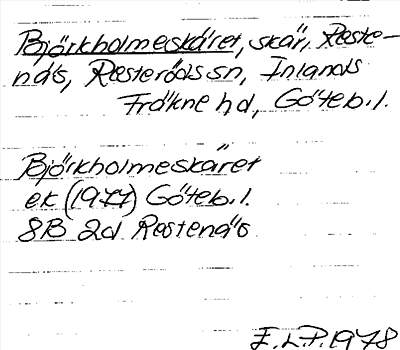 Björkholmeskäret, skär, Reste-
näs, Resteröds sn, Inlands
Fräkne hd, Göteb. l.
Björkholmeskäret
ek (1977) Göteb. l.
8B 2d Restenäs
E.L.P. 1978